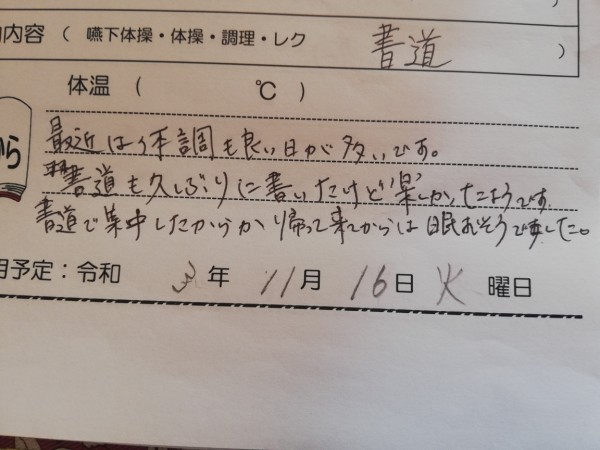 内容（嚥下体操・体操・調理・レク 書道 ）
体温（ ℃）
から
最近は体調も良い日が多いです。
書道も久しぶりに書いたけど楽しかったようです。
書道で集中したからか帰って来てからは眠おそうでました。
月予定：令和 3年 11月 16日 火曜日